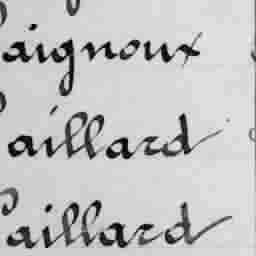 Paignoux
Paillard
Paillard